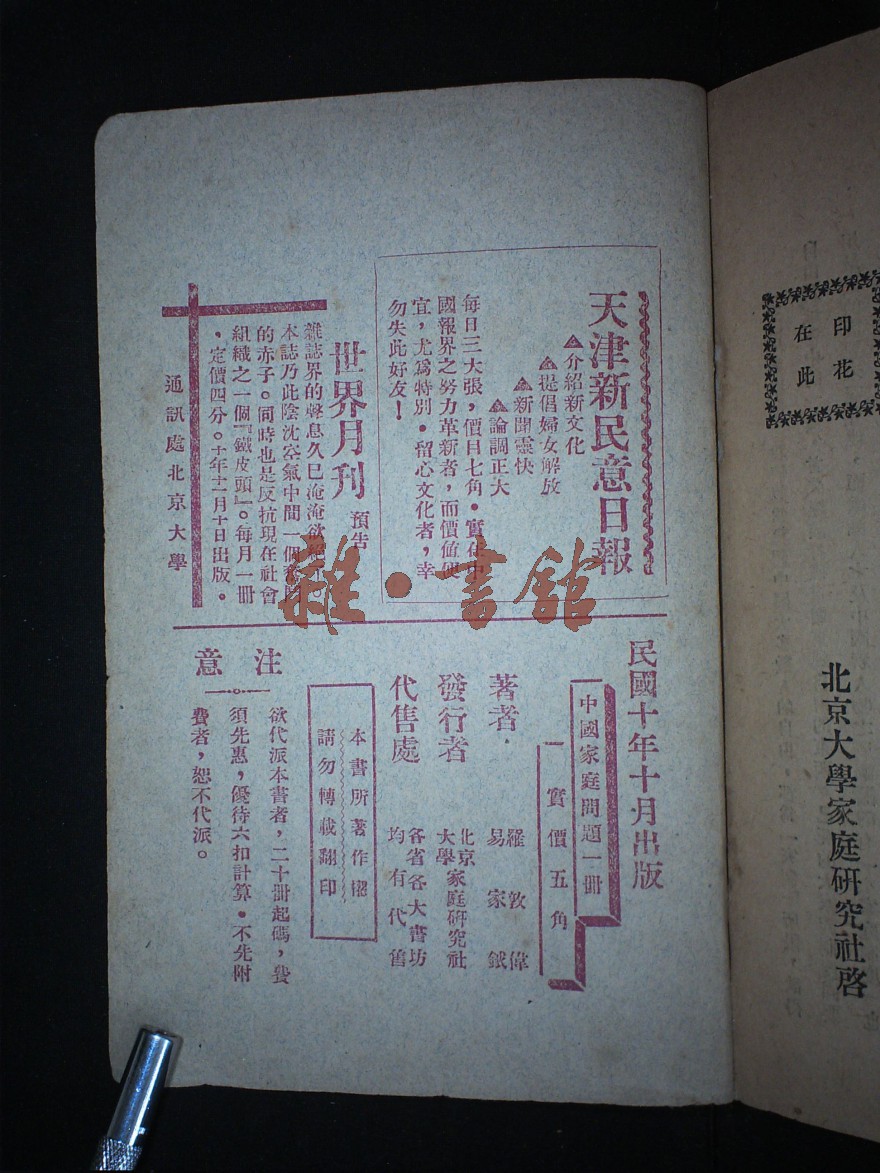 印花
在此
北京大學家庭研究社啓
天津新民意日報
▲介紹新文化
▲提倡婦女解放
▲新聞靈快
▲論調正大
每日三大張，價目七角．實在中
國報界之努力革新者，而價值便
宜，尤爲特別．留心文化者，幸
勿失此好友！
世界月刊 預告
雜誌界的聲息久已淹淹欲絕了。
本誌乃此陰沈空氣中間一個奮鬥
的赤子。同時也是反抗現在社會
組織之一個『鐵皮頭』。每月一冊
，定價四分。十年十二月十日出版。
通訊處北京大學
民國十年十月出版
中國家庭問題一冊
實價五角
著者． 羅敦偉
易家鉞
發行者 北京大學家庭研究社
代售處 各省各大書坊
均有代售
本書所著作權
請勿轉載翻印
注意
欲代派本書者，二十冊起碼，費
須先惠，優待六扣計算．不先附
費者，恕不代派。
雜·書館